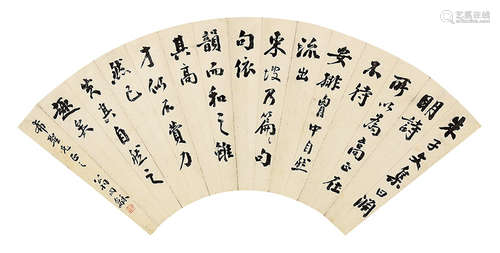 朱子文集曰淵
明詩
所以為高正在
不待
安排胷中自然
流出
東坡乃篇〻句
句依
韻而和之雖
其高
才似不費力
然已
失其自然之
趣矣
翁同龢